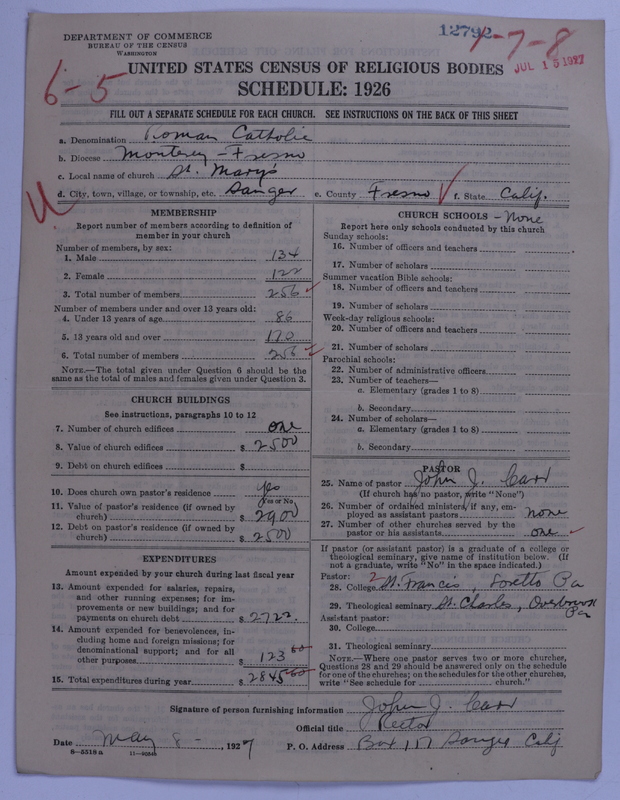 DEPARTMENT OF COMMERCE
BUREAU OF THE CENSUS
WASHINGTON
12792
7-7-8
JUL 15 1927
6-5
UNITED STATES CENSUS OF RELIGIOUS BODIES
SCHEDULE: 1926
FILL OUT A SEPARATE SCHEDULE FOR EACH CHURCH. SEE INSTRUCTIONS ON THE BACK OF THIS SHEET
a. Denomination Roman Catholic
b. Diocese Monterey - Fresno
c. Local name of church St. Mary's
d. City, town, village, or township, etc. Sanger e. County Fresno f. State Calif.
MEMBERSHIP
Report number of members according to definition of member in your church
Number of members, by sex:
1. Male 134
2. Female 122
3. Total number of members 256
Number of members under and over 13 years old:
4. Under 13 years of age 86
5. 13 years old and over 170
6. Total number of members 256
NOTE.—The total given under Question 6 should be the
same as the total of males and females given under Question 3.
CHURCH BUILDINGS
See instructions, paragraphs 10 to 12
7. Number of church edifices one
8. Value of church edifices $ 2500
9. Debt on church edifices $
10. Does church own pastor's residence yes
Yes or No
11. Value of pastor's residence (if owned by
church) $ 2900
12. Debt on pastor's residence (if owned by
church) $ 2500
EXPENDITURES
Amount expended by your church during last fiscal year
13. Amount expended for salaries, repairs,
and other running expenses; for im-
provements or new buildings; and for
payments on church debt $ 2722.
14. Amount expended for benevolences, in-
cluding home and foreign missions; for
denominational support; and for all
other purposes $ 123 60
15. Total expenditures during year $ 2845 60
CHURCH SCHOOLS - None
Report here only schools conducted by this church
Sunday schools:
16. Number of officers and teachers
17. Number of scholars
Summer vacation Bible schools:
18. Number of officers and teachers
19. Number of scholars
Week-day religious schools:
20. Number of officers and teachers
21. Number of scholars
Parochial schools:
22. Number of administrative officers
23. Number of teachers—
a. Elementary (grades 1 to 8)
b. Secondary
24. Number of scholars—
a. Elementary (grades 1 to 8)
b. Secondary
PASTOR
25. Name of pastor John J. Carr
(If church has no pastor, write "None")
26. Number of ordained ministers, if any, em-
ployed as assistant pastors none
27. Number of other churches served by the
pastor or his assistants one
If pastor (or assistant pastor) is a graduate of a college or
theological seminary, give name of institution below. (If
not a graduate, write "No" in the space indicated.)
Pastor:
28. College St. Francis Loretto Pa
29. Theological seminary St. Charles, Overbrook Pa
Assistant pastor:
30. College
31. Theological seminary
NOTE.—Where one pastor serves two or more churches,
Questions 28 and 29 should be answered only on the schedule
for one of the churches; on the schedules for the other churches,
write "See schedule for church."
Signature of person furnishing information John J. Carr
Official title Rector
Date May 8 -, 1927 P. O. Address Box 117 Sanger Calif
8-5518 a